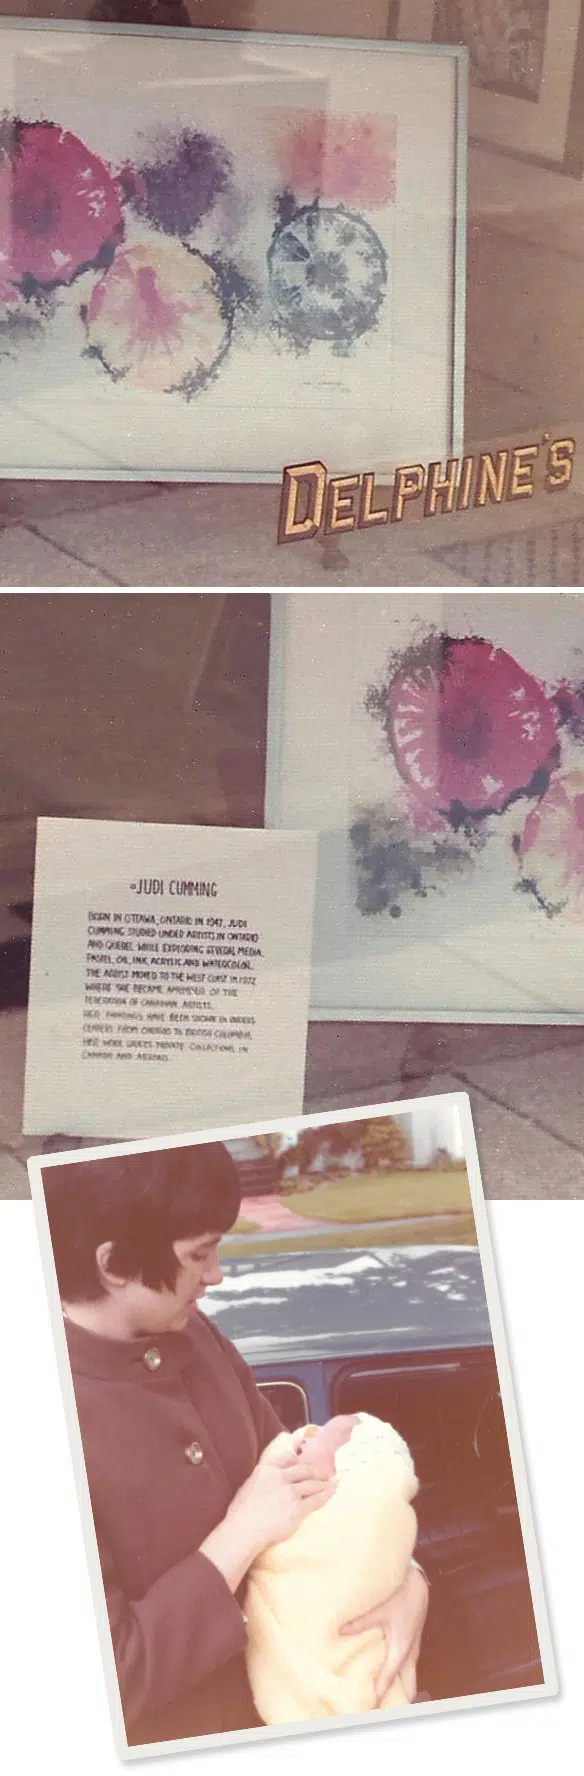 DELPHINE'S
JUDI CUMMING
BORN IN OTTAWA, ONTARIO IN 1947, JUDI
CUMMING STUDIED UNDER ARTISTS IN ONTARIO
AND QUEBEC WHILE EXPLORING SEVERAL MEDIA,
PASTEL, OIL, INK, ACRYLIC AND WATERCOLOR.
THE ARTIST MOVED TO THE WEST COAST IN 1972
WHERE SHE BECAME A MEMBER OF THE
FEDERATION OF CANADIAN ARTISTS.
HER PAINTINGS HAVE BEEN SHOWN IN VARIOUS
CENTERS FROM ONTARIO TO BRITISH COLUMBIA.
HER WORK GRACES PRIVATE COLLECTIONS IN
CANADA AND ABROAD.